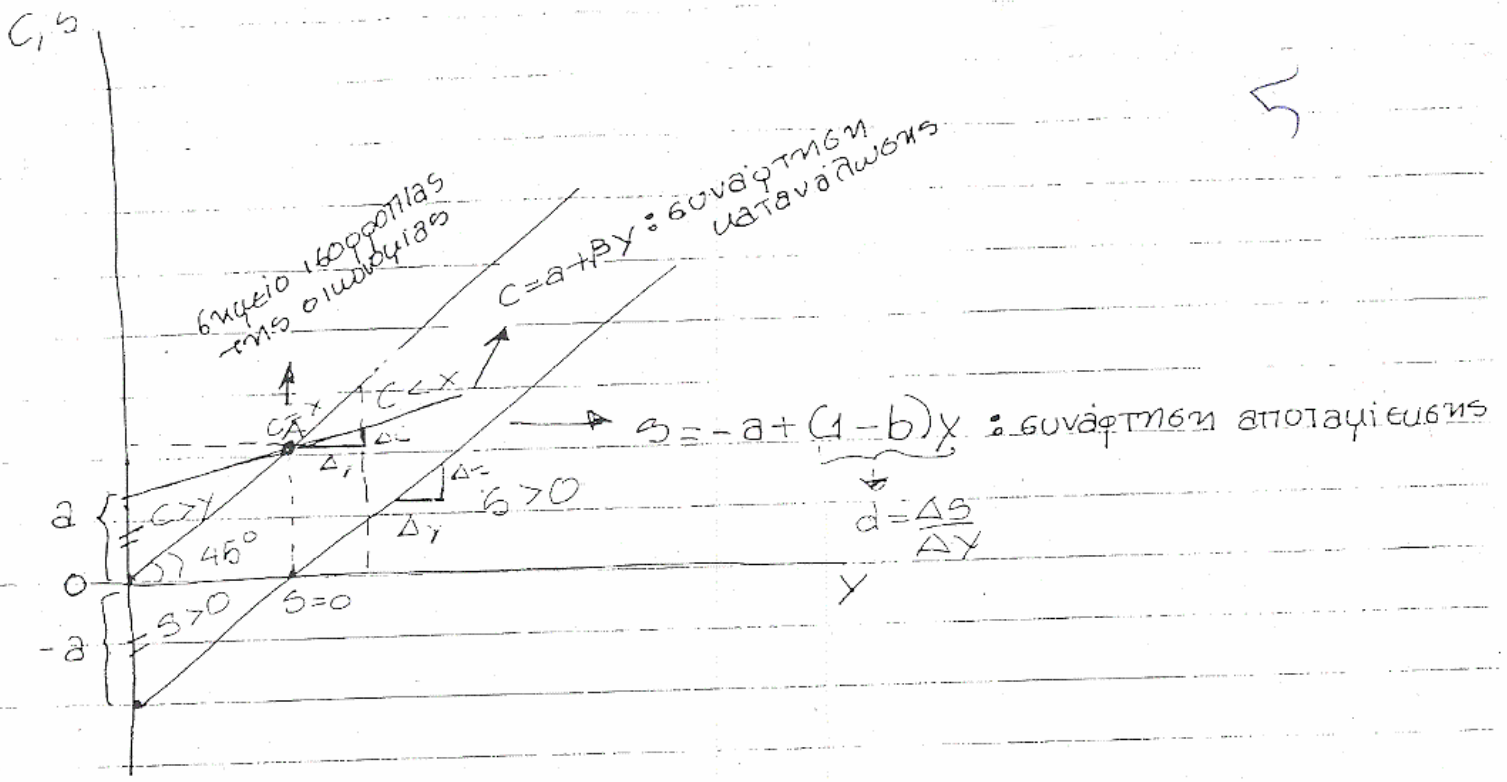 C, S
5
σημείο ισορροπίας
της οικονομίας
C=a+βy: συνάρτηση
κατανάλωσης
C<X
S=-a+(1-b)y : συνάρτηση αποταμίευσης
d=ΔS
ΔY
a
C>Y
Δγ
S>0
45°
0
S=0
Y
-a
S>0